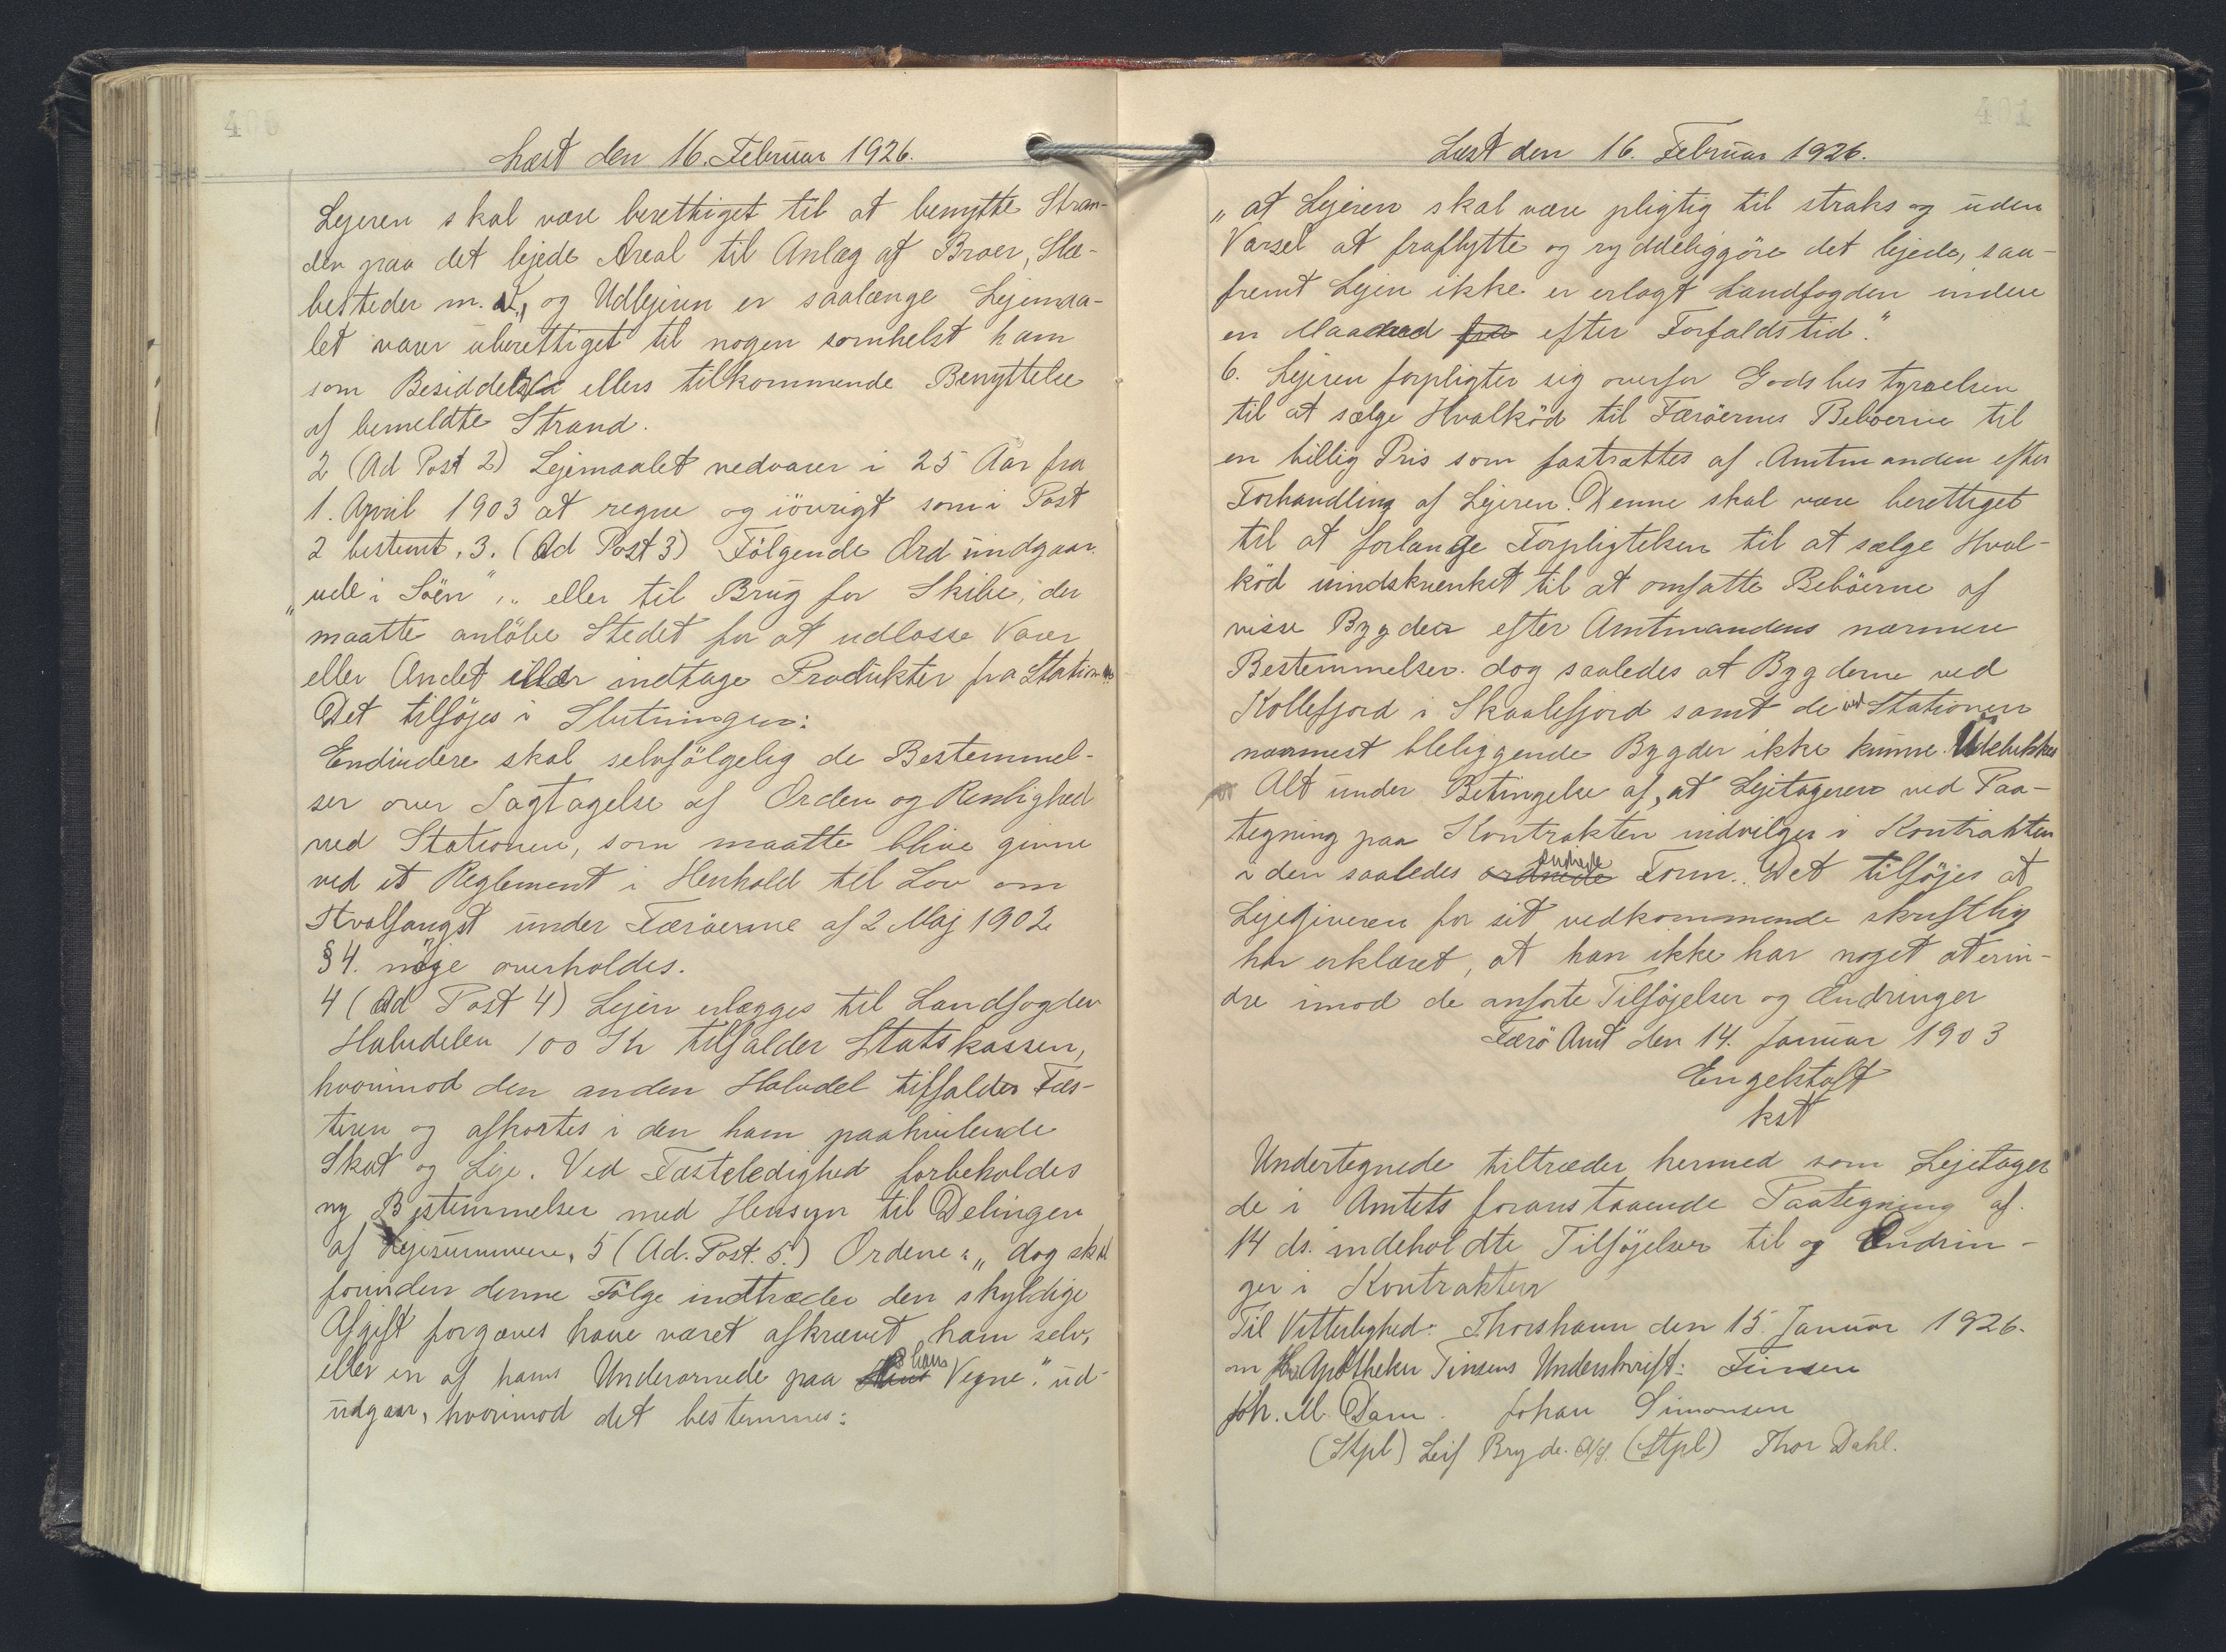 400
Læst den 16. Februar 1926.
Lejeren skal være berettiget til at benytte Stran-
den paa det lejede Areal til Anlæg af Broer, Slæ-
besteder m. V., og Udlejeren er saalænge Lejemaa-
let varer uberettiget til nogen somhelst ham
som Besidder ellers tilkommende Benyttelse
af bemeldte Strand.
2 (Ad Post 2) Lejemaalet vedvarer i 25 Aar fra
1. April 1903 at regne og iövrigt som i Post
2 bestemt. 3. (Ad Post 3) Fölgende Ord undgaar.
"ude i Söen" " eller til Brug for Skibe, der
maatte anlöbe Stedet for at udlosse Varer
eller Andet eller indtage Produkter fra Stationen
Det tilföjes i Slutningen:
Endvidere skal selvfölgelig de Bestemmel-
ser over Iagtagelse af Orden og Renlighed
ved Stationen, som maatte blive givne
ved et Reglement i Henhold til Lov om
Hvalfangst under Færöerne af 2 Maj 1902
§ 4. nöje overholdes.
4 (Ad Post 4) Lejen erlægges til Landfogden
Halvdelen 100 Kr tilfalder Statskassen,
hvorimod den anden Halvdel tilfalder Fæs-
teren og afkortes i den ham paahvilende
Skat og Leje. Ved Fæsteledighed forbeholdes
ny Bestemmelser med Hensyn til Delingen
af Lejesummen. 5 (Ad. Post. 5.) Ordene: " dog skal
forinden denne Fölge indtræder den skyldige
Afgift forgæves have været afkrævet ham selv,
eller en af hans Underornede paa hans Vegne". ud-
udgaar, hvorimod det bestemmes:
401
Læst den 16. Februar 1926.
" at Lejeren skal være pligtig til straks og uden
Varsel at fraflytte og ryddeliggöre det lejede, saa-
fremt Lejen ikke er erlagt Landfogden indere
en Maaned fra efter Forfaldstid."
6. Lejeren forpligter sig overfor Godsbestyrelsen
til at sælge Hvalköd til Færöernes Beboerne til
en billig Pris som fastsættes af Amtmanden efter
Forhandling af Lejeren. Denne skal være berettiget
til at forlange Forpligtelsen til at sælge Hval-
köd uindskrænket til at omfatte Beböerne af
visse Bygder efter Amtmandens nærmere
Bestemmelser. dog saaledes at Bygderne ved
Kollefjord i Skaalefjord samt de ved Stationen
nærmest bleliggende Bygder ikke kunne Udelukkes
Alt under Betingelse af, at Lejetageren ved Paa-
tegning paa Kontrakten indvilger i Kontrakten
i den saaledes ordnede ændrede Form. Det tilföjes at
Lejegiveren for sit vedkommende skriftlig
har erklæret, at han ikke har noget at erin-
dre imod de anförte Tilföjelser og Ændringer
Færö Amt den 14. Januar 1903
Engelstoft
kst
Undertegnede tiltræder hermed som Lejetager
de i Amtets foranstaaende Paategning af.
14 ds. indeholdte Tilföjelser til og Ændrin-
ger i Kontrakten
Til Vitterlighed: Thorshavn den 15. Januar 1926.
om Hr. Apotheker Finsens Underskrift: Finsen
Joh. M. Dam. Johan Simonsen
(Stpl) Leif Bryde. A/S. (Stpl) Thor Dahl.